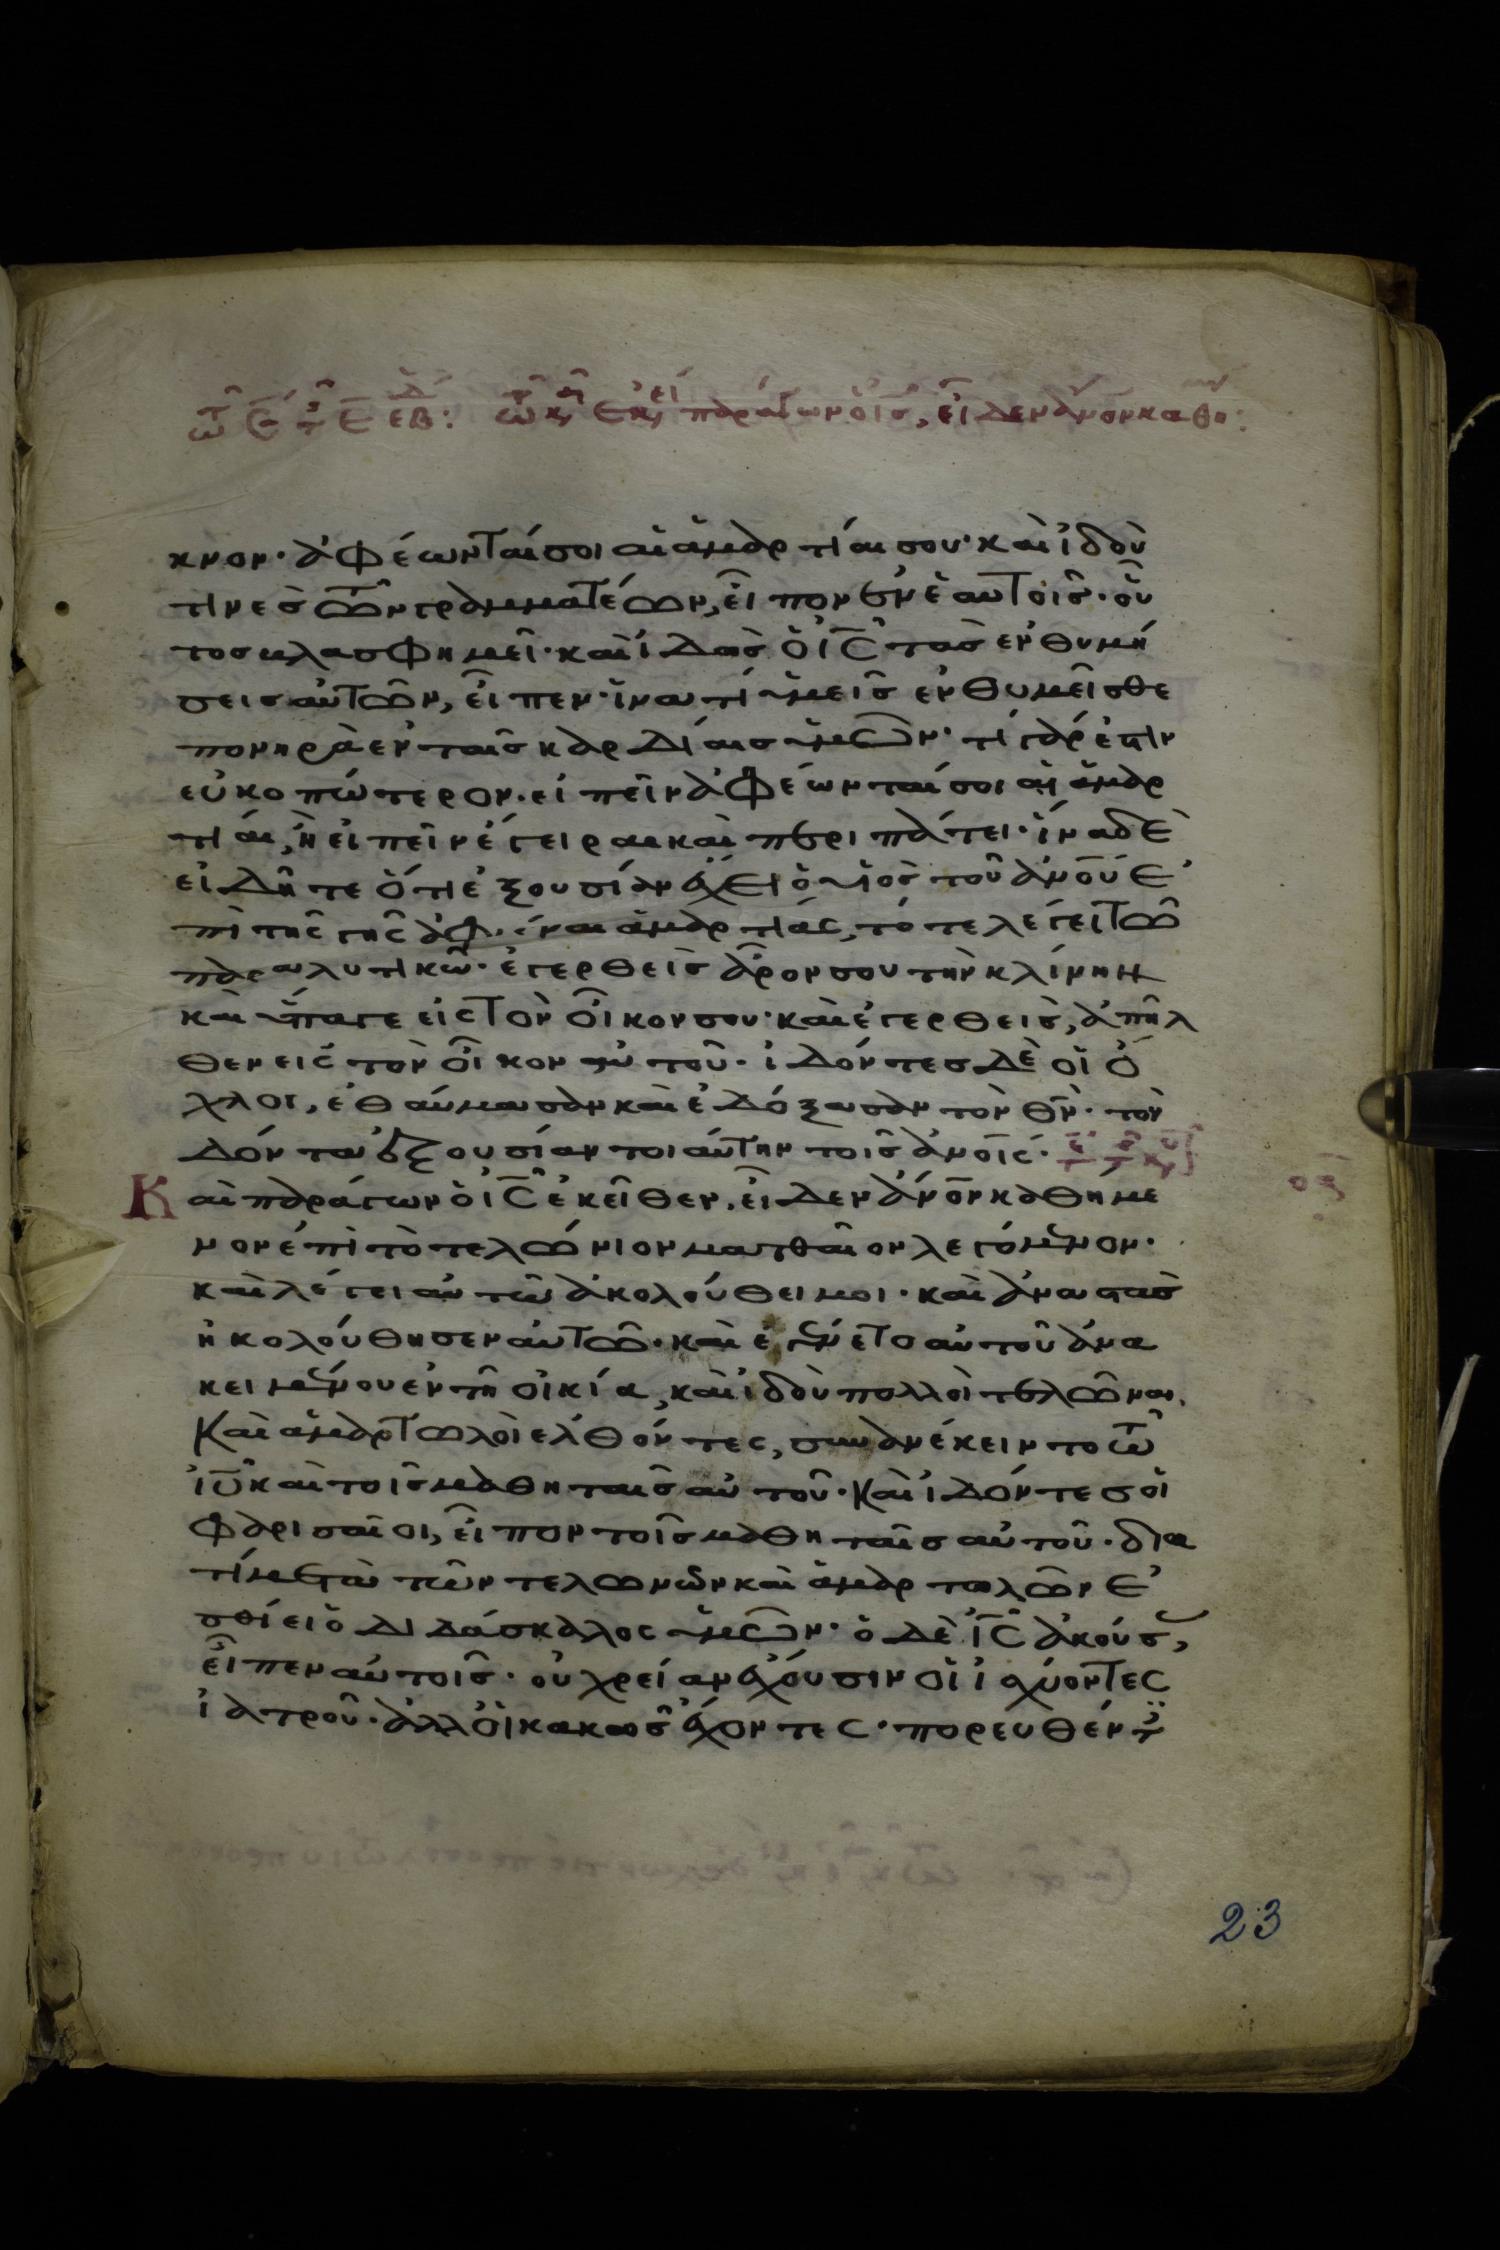 κνον· ἀφέωνταί σοι αἱ ἁμαρτίαι σου· καὶ ἰδοὺ
τινὲς τῶν γραμματέων, εἶπον ἐν ἑαυτοῖς· οὗ
τος βλασφημεῖ· καὶ ἰδὼς ὁ ις τὰς ἐνθυμή
σεις αὐτῶν, εἶπεν· ἵνα τί ὑμεῖς ἐνθυμεῖσθε
πονηρὰ ἐν ταῖς καρδίαις ὑμῶν· τί γάρ ἐστιν
εὐκοπώτερον· εἰπεῖν ἀφέωνταί σοι αἱ ἁμαρ
τίαι, ἢ εἰπεῖν ἔγειραι καὶ περιπάτει· ἵνα δὲ
εἰδῆτε ὅτι ἐξουσίαν ἔχει ὁ υἱὸς τοῦ ανου ἐ
πὶ τῆς γῆς ἀφιέναι ἁμαρτίας, τότε λέγει τῶ
παραλυτικῶ· ἐγερθεὶς ἆρον σου τὴν κλίνην
καὶ ὕπαγε εἰς τὸν οἶκον σου· καὶ ἐγερθεὶς, ἀπῆλ
θεν εἰς τὸν οἶκον αὐτοῦ· ἰδόντες δὲ οἱ ὄ
χλοι, ἐθαύμασαν καὶ ἐδόξασαν τὸν θν· τὸν
δόντα ἐξουσίαν τοιαύτην τοῖς ανοις·
Καὶ παράγων ὁ ις ἐκεῖθεν, εἶδεν ανον καθήμε
νον ἐπὶ τὸ τελώνιον ματθαῖον λεγόμενον·
καὶ λέγει αὐτῶ ἀκολούθει μοι· καὶ ἀναστὰς
ἠκολούθησεν αὐτῶ· καὶ ἐγένετο αὐτοῦ ἀνα
κειμένου ἐν τῆ οἰκία, καὶ ἰδοὺ πολλοὶ τελῶναι,
Καὶ ἁμαρτωλοὶ ἐλθόντες, συνανέκειντο τῶ
ιυ καὶ τοῖς μαθηταῖς αὐτοῦ· Καὶ ἰδόντες οἱ
φαρισαῖοι, εἶπον τοῖς μαθηταῖς αὐτοῦ· δια
τί μετὰ τῶν τελωνῶν καὶ ἁμαρτωλῶν ἐ
σθίει ὁ διδάσκαλος ὑμῶν· ὁ δὲ ις ἀκούσας,
εἶπεν αὐτοῖς· οὐ χρείαν ἔχουσιν οἱ ἰσχύοντες
ἰατροῦ· ἀλλ οἱ κακῶς ἔχοντες· πορευθέντες
23